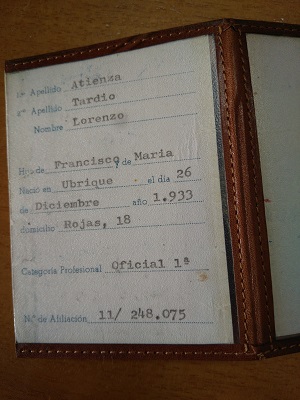 1er Apellido Atienza
2º Apellido Tardio
Nombre Lorenzo
Hijo de Francisco y de Maria
Nació en Ubrique el día 26
de Diciembre año 1.933
domicilio Rojas, 18
Categoría Profesional Oficial 1ª
N.º de Afiliación 11/ 248.075